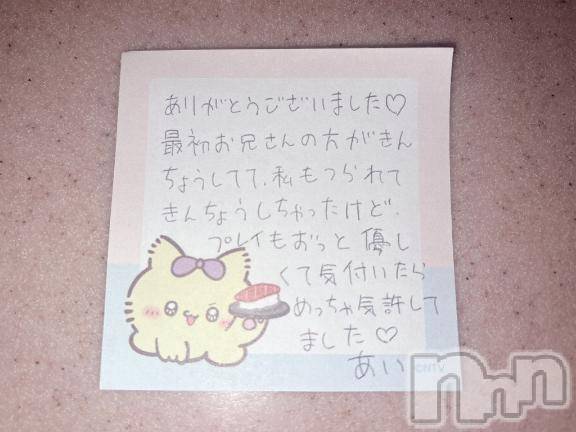 ありがとうございました♡
最初お兄さんの方がきん
ちょうしてて、私もつられて
きんちょうしちゃったけど、
プレイもずっと優し
くて気付いたら
めっちゃ気許して
ました♡
あい
©NTV
nnn